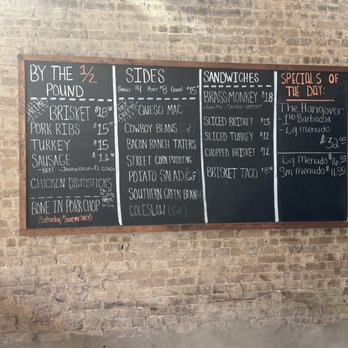 BY THE 1/2
POUND
BRISKET $18
PORK RIBS $15
TURKEY $15
SAUSAGE
CHICKEN DRUMSTICKS
BONE IN PORK CHOP
(Saturday/Sunday only)
SIDES
$4 $8 $15
QUESO MAC
COWBOY BEANS (GF)
BACON RANCH TATERS
STREET CORN PUDDING
POTATO SALAD (GF)
SOUTHERN GREEN BEAN
COLESLAW (GF)
SANDWICHES
BRASS MONKEY $18
SLICED BRISKET $13
SLICED TURKEY $12
CHOPPED BRISKET $12
BRISKET TACO
SPECIALS OF
THE DAY:
The Hangover
-1lb Barbacoa
-Lg menudo
Lg Menudo
Sm Menudo